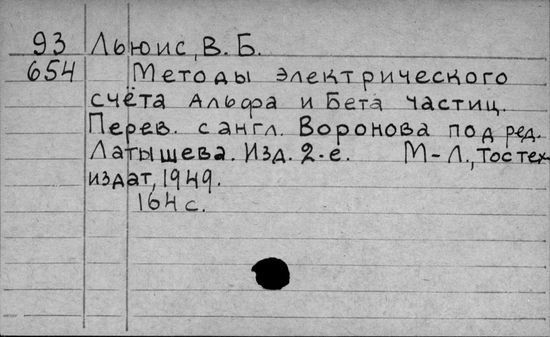 93 Льюис, В. Б.
654 Методы электрического
счёта Альфа и Бета частиц.
Перев. с англ. Воронова под ред.
Латышева. Изд. 2-е. М-Л., Гостех
издат, 1949.
164 с.